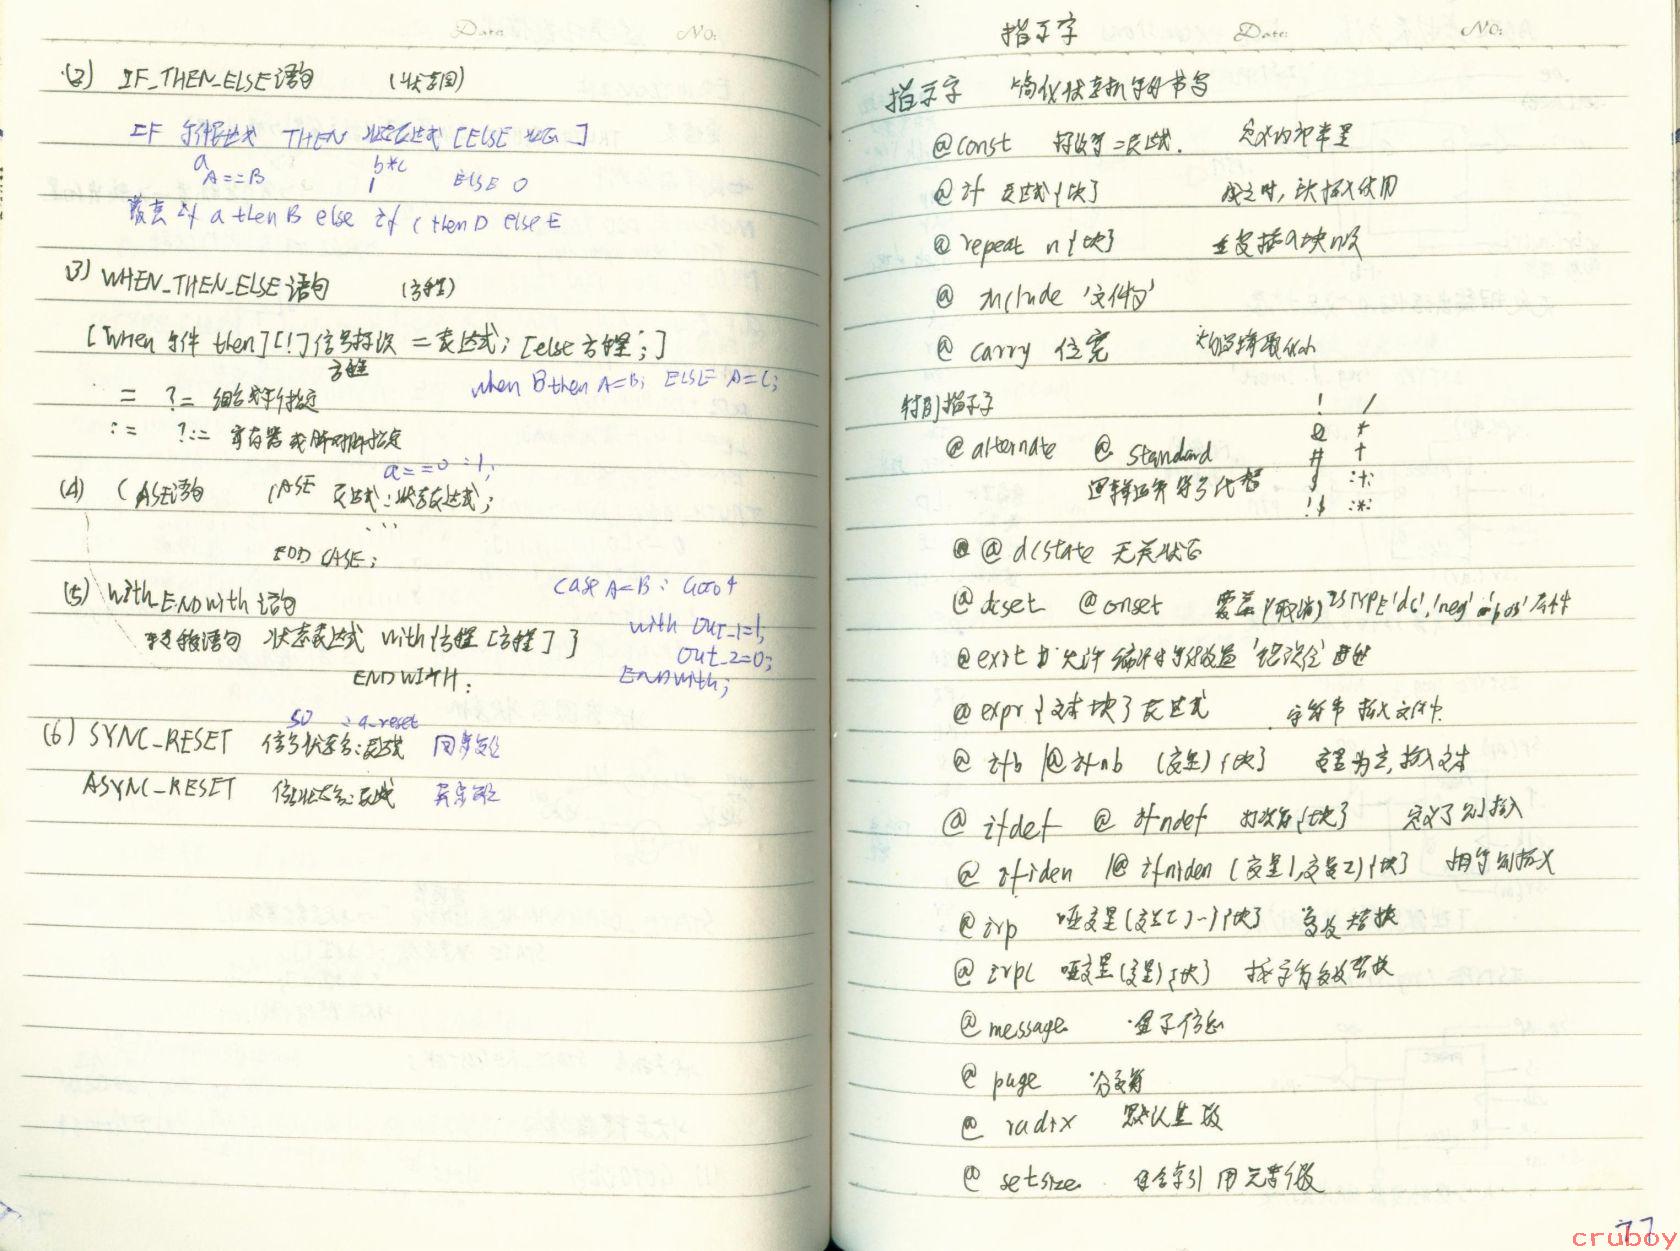 Date: No:
(2) IF_THEN_ELSE语句 (状态图)
IF 条件表达式 THEN 状态表达式 [ELSE 状态]
a b*c
A==B 1 ELSE 0
覆盖 if a then B else if C then D else E
(3) WHEN_THEN_ELSE语句 (方程)
[When 条件 then][!]信号标识 = 表达式; [else 方程;]
方程
when B then A=B; ELSE A=C;
= ?= 组合或并行指定
:= ?:= 寄存器或时钟指定
a==0 :1;
(4) CASE语句 CASE 表达式:状态表达式;
...
END CASE;
case A=B: Goto 4
(5) With_ENDwith语句
转移语句 状态表达式 with{方程 [方程]}
ENDWITH;
with out_1=1;
out_2=0;
Endwith;
S0 :a_reset
(6) SYNC_RESET 信号状态名:表达式 同步复位
ASYNC_RESET 信号状态名:表达式 异步复位
指示字 Date: No:
指示字 简化状态机等的书写
@const 标识符=表达式. 定义内部常量
@if 表达式{块} 成立时, 块插入使用
@repeat n{块} 重复插入块n次
@include '文件名'
@carry 位宽
特别指示字
@alternate @standard
逻辑运算符号代替
! /
& *
# +
$ :+:
!$ :*:
@dcstate 无关状态
@dcset @onset 覆盖(取消) ISTYPE 'dc','neg' 'pos' 条件
@exit 允许编译时条件设置
@expr {文本块} 表达式 字符串插入文件中.
@ifb |@ifnb (变量){块} 变量为空,插入文本
@ifdef @ifndef 标识符{块} 定义了则插入
@ifiden |@ifniden (变量1,变量2){块} 相等则插入
@irp 哑变量(变量[]...){块} 多次替换
@irpc 哑变量(变量){块} 按字符多次替换
@message 显示信息
@page 分页符
@radix 默认基数
@setsize 包含索引用元素个数
77
cruboy